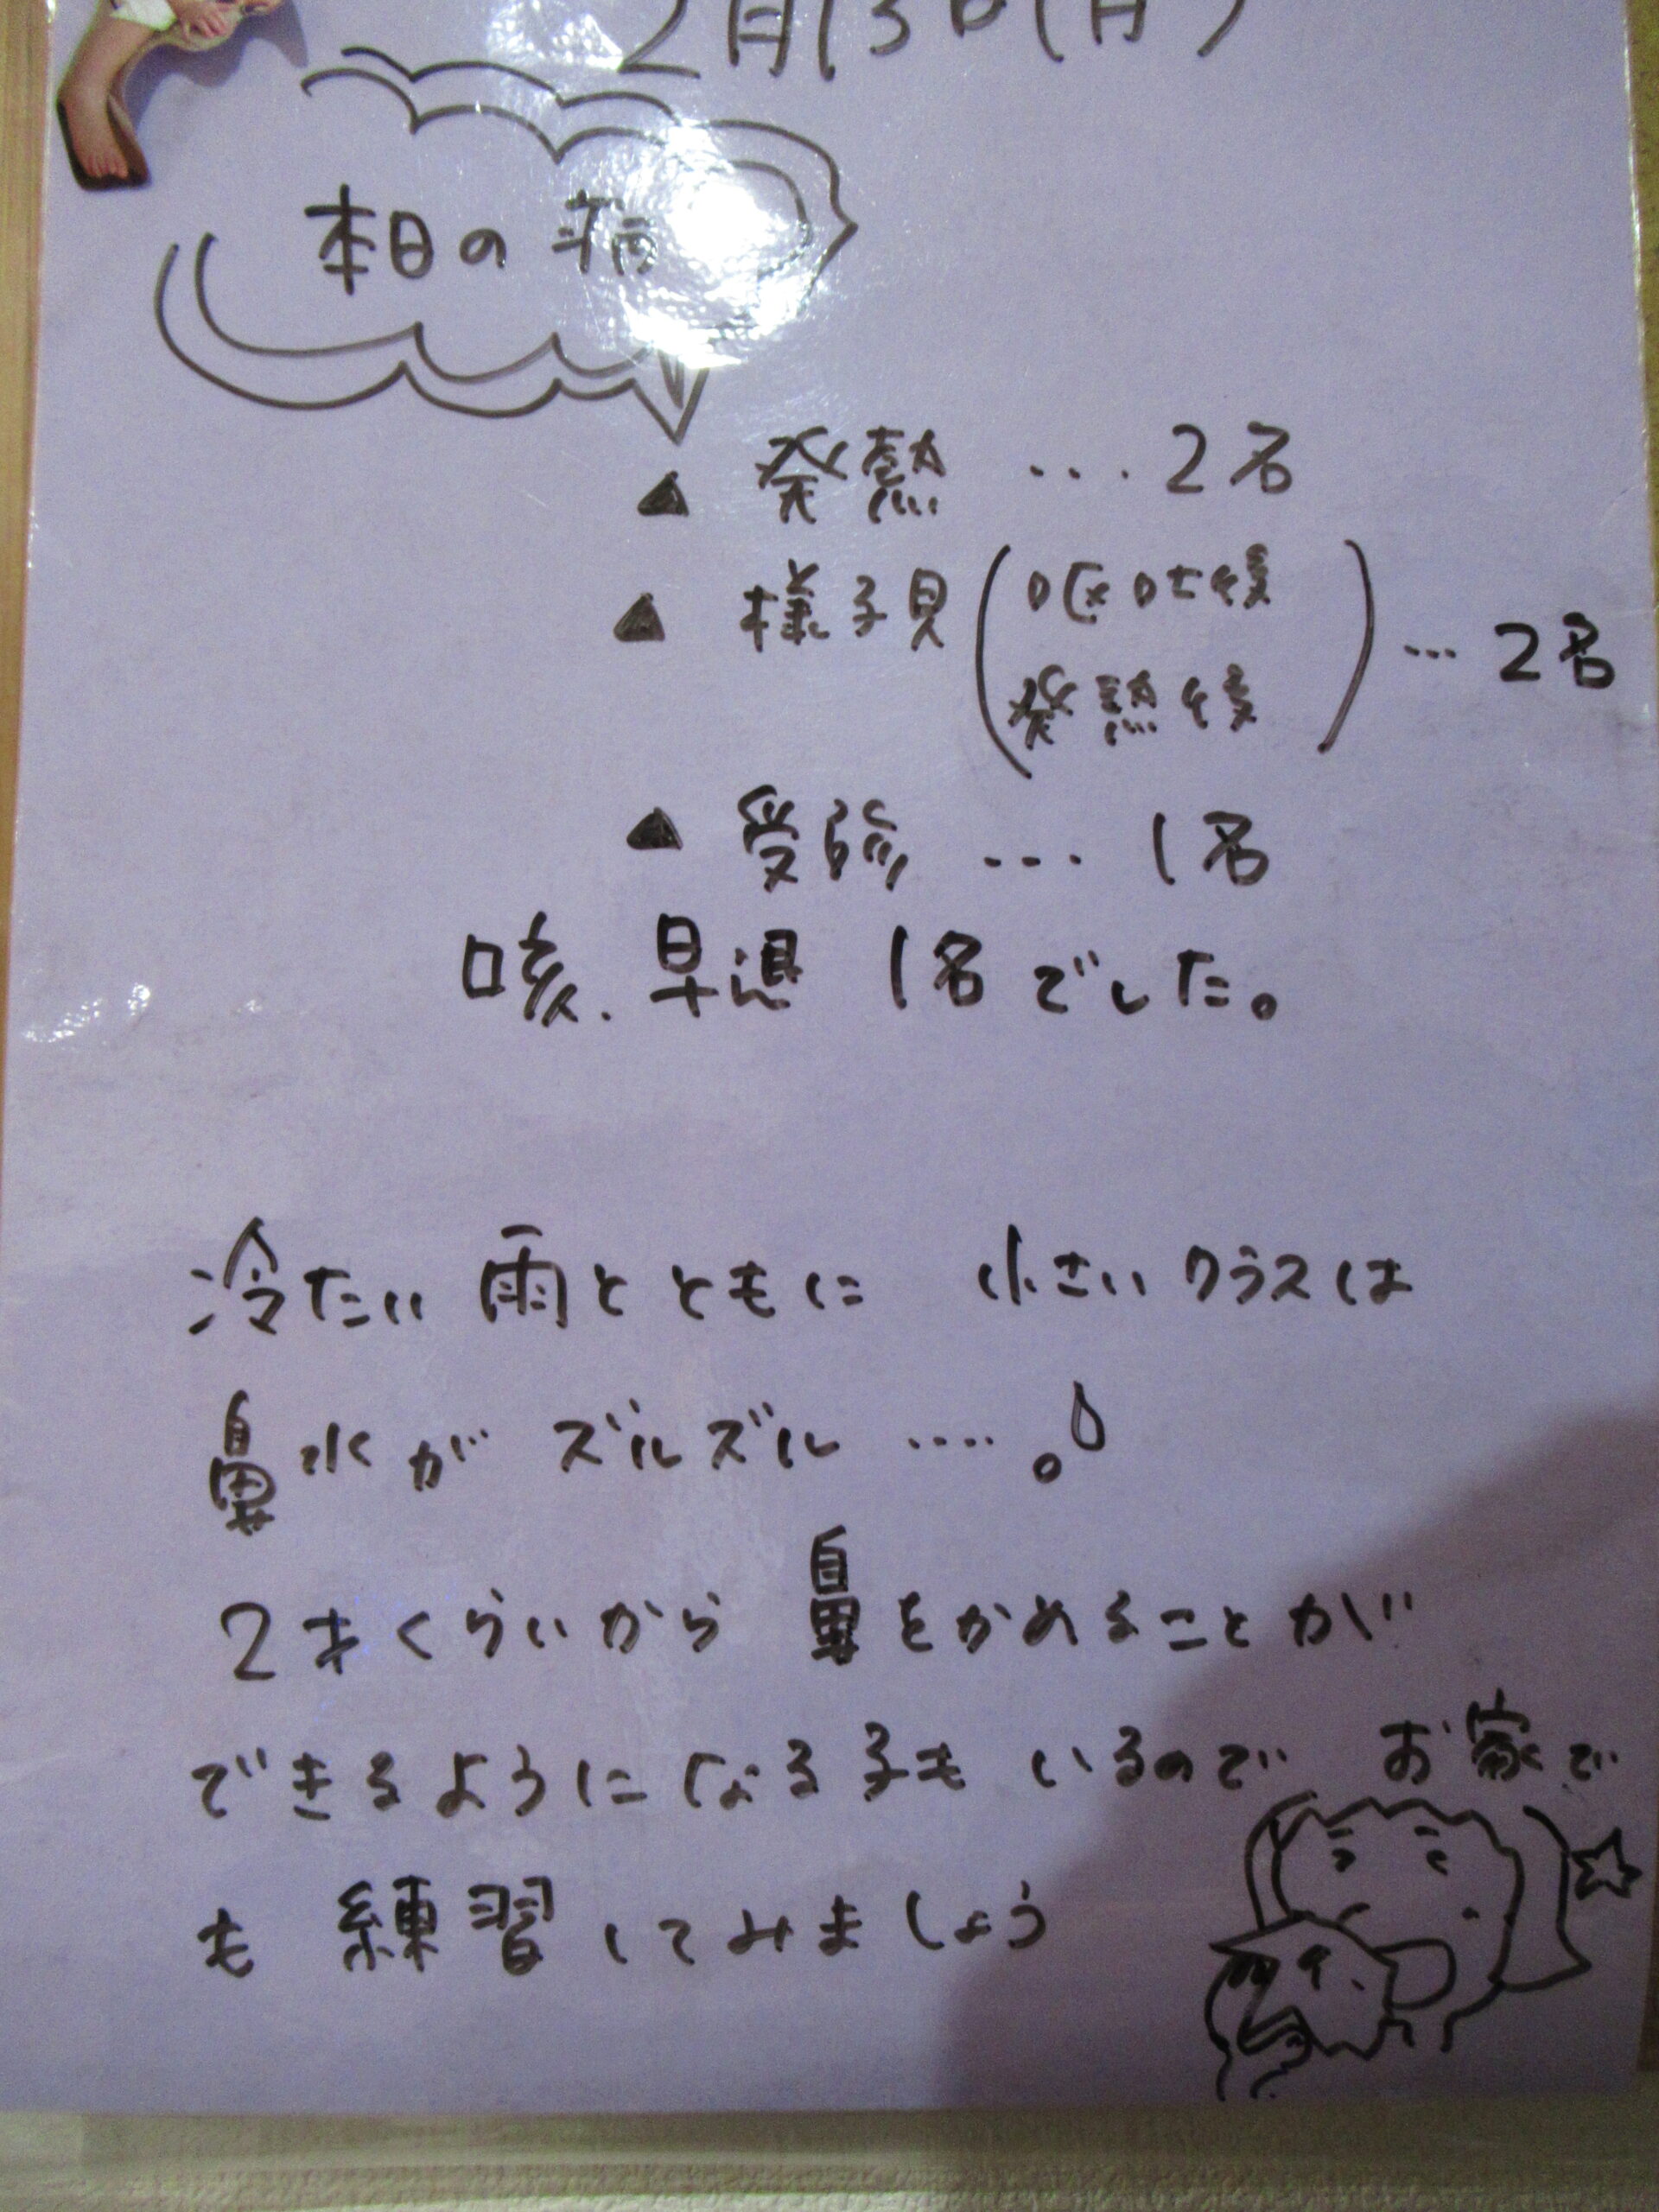 2月13日(月)
本日の病
▲ 発熱 ... 2名
▲ 様子見(嘔吐後 発熱後) ... 2名
▲ 受診 ... 1名
咳、早退 1名でした。
冷たい雨とともに 小さいクラスは
鼻水が ズルズル .....。
2才くらいから 鼻をかめることが
できるようになる子も いるので お家で
も 練習してみましょう